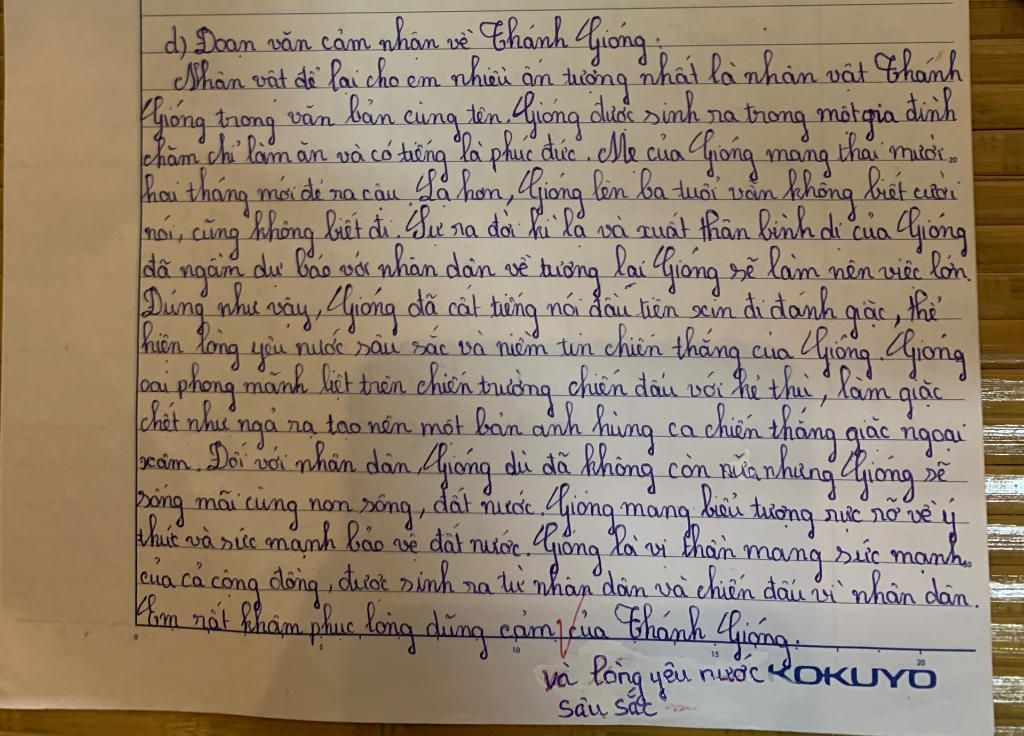 d) Đoạn văn cảm nhận về Thánh Gióng.
Nhân vật để lại cho em nhiều ấn tượng nhất là nhân vật Thánh
Gióng trong văn bản cùng tên. Gióng được sinh ra trong một gia đình
chăm chỉ làm ăn và có tiếng là phúc đức. Mẹ của Gióng mang thai mười
hai tháng mới đẻ ra cậu. Lạ hơn, Gióng lên ba tuổi vẫn không biết cười
nói, cũng không biết đi. Sự ra đời kì lạ và xuất thân bình dị của Gióng
đã ngầm dự báo với nhân dân về tương lai Gióng sẽ làm nên việc lớn.
Đúng như vậy, Gióng đã cất tiếng nói đầu tiên xin đi đánh giặc, thể
hiện lòng yêu nước sâu sắc và niềm tin chiến thắng của Gióng. Gióng
oai phong mãnh liệt trên chiến trường chiến đấu với kẻ thù, làm giặc
chết như ngả rạ tạo nên một bản anh hùng ca chiến thắng giặc ngoại
xâm. Đối với nhân dân, Gióng dù đã không còn nữa nhưng Gióng sẽ
sống mãi cùng non sông, đất nước. Gióng mang biểu tượng rực rỡ về ý
thức và sức mạnh bảo vệ đất nước. Gióng là vị thần mang sức mạnh
của cả cộng đồng, được sinh ra từ nhân dân và chiến đấu vì nhân dân.
Em rất khâm phục lòng dũng cảm của Thánh Gióng.
và lòng yêu nước
sâu sắc
KOKUYO
5 10 15 20